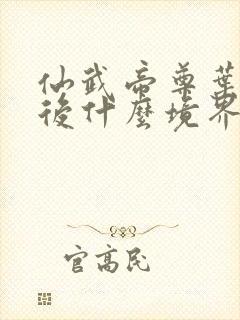 仙武帝尊葉
後什麼境界
官高民